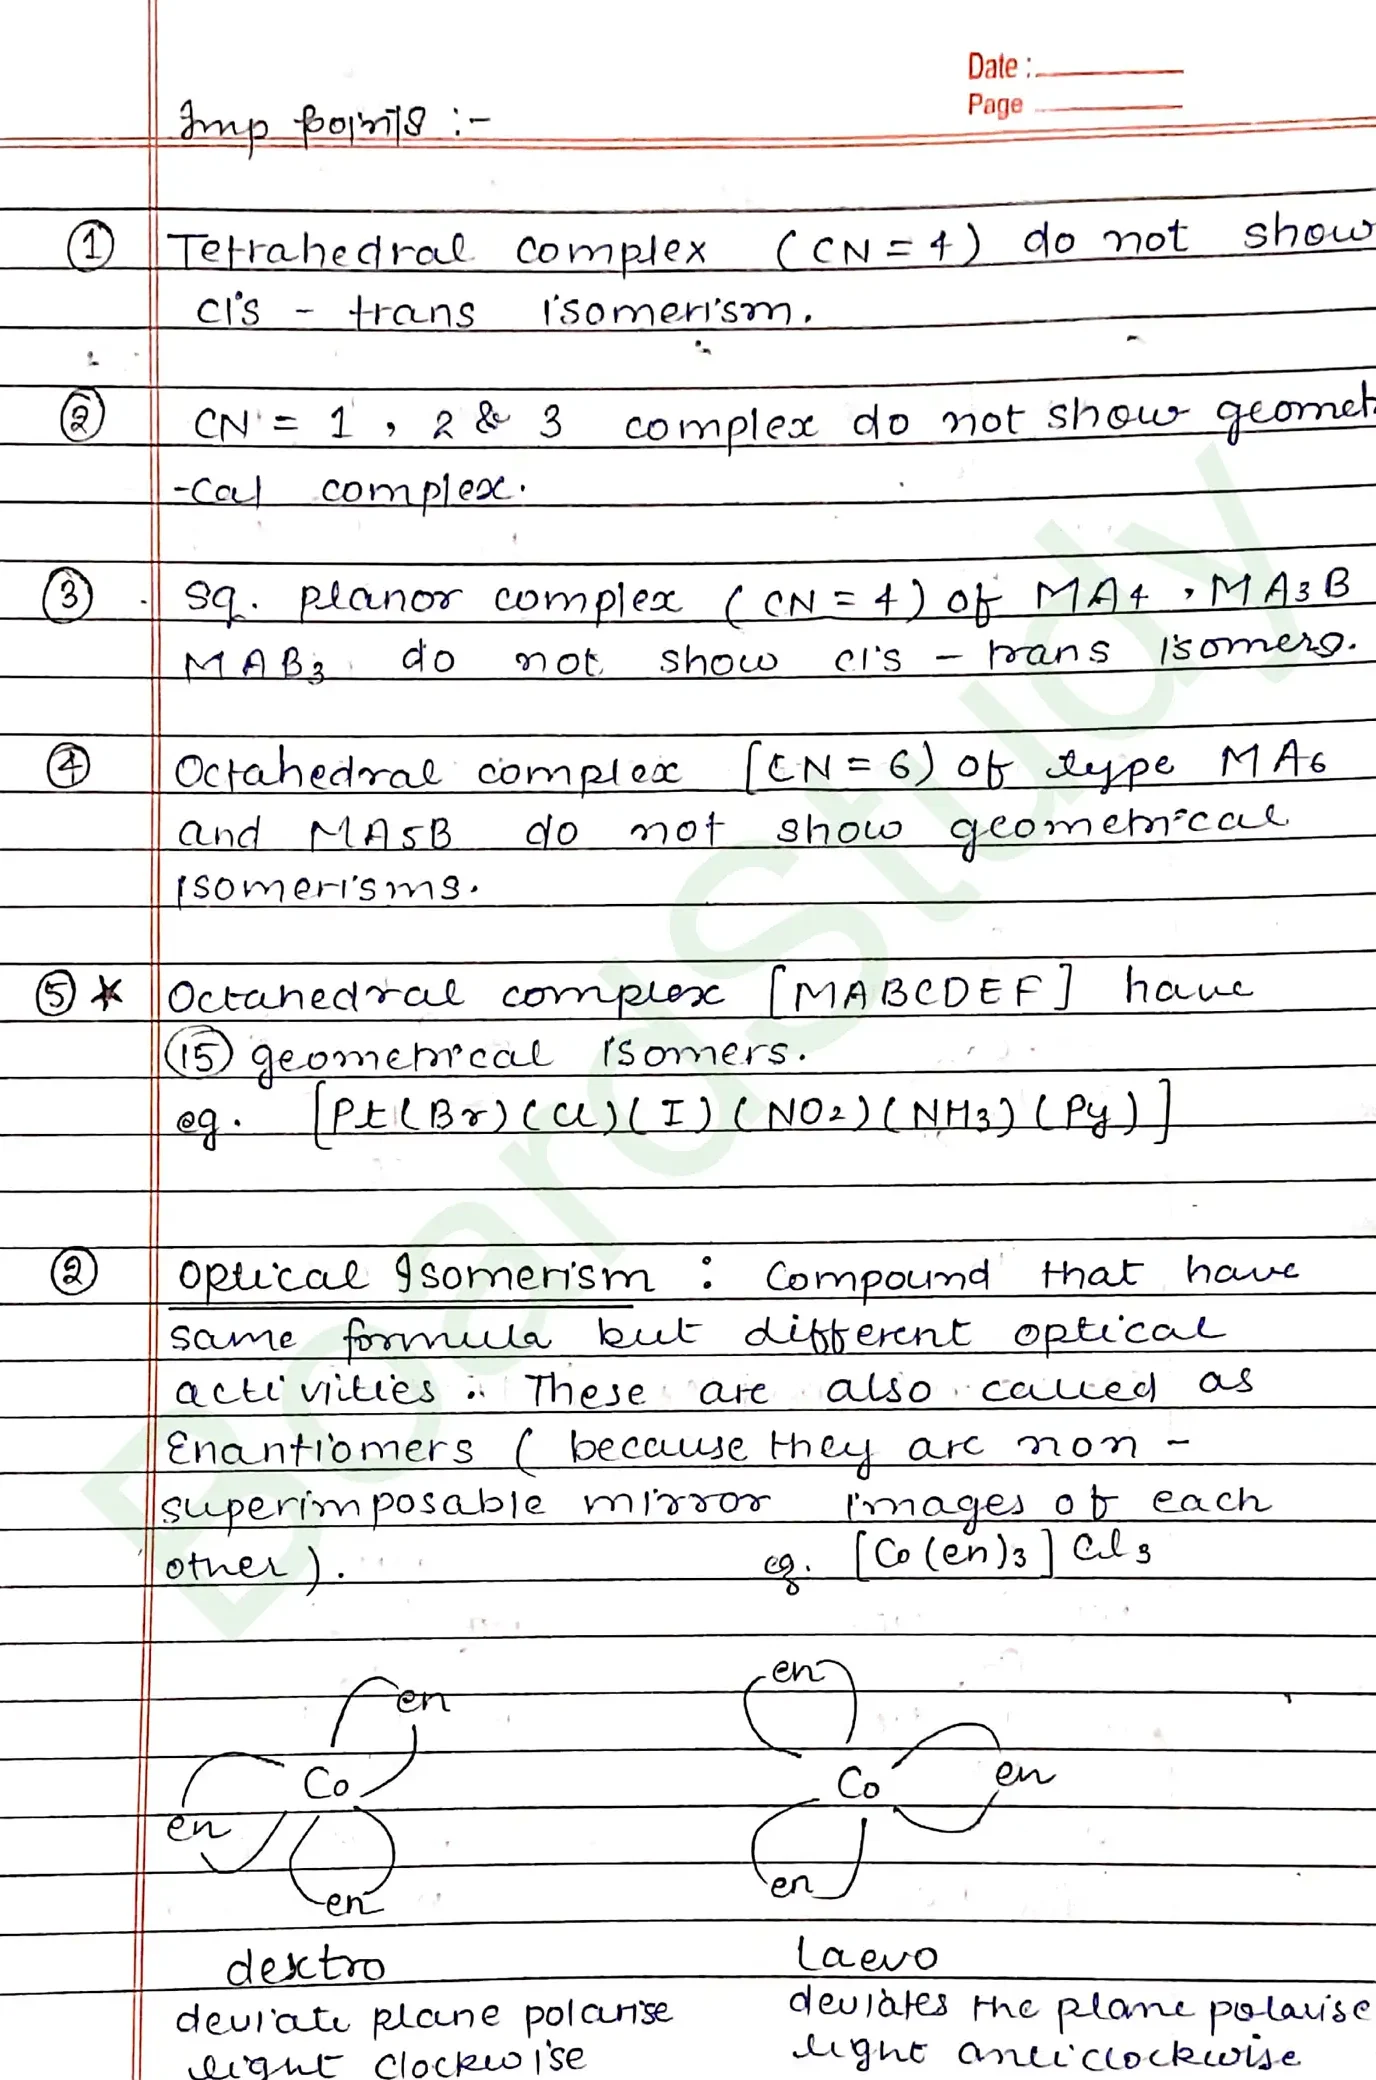 Date :
Page
Imp points :-
① Tetrahedral complex (CN = 4) do not show
cis - trans isomerism.
② CN = 1, 2 & 3 complex do not show geomet
-cal complex.
③ Sq. planar complex (CN = 4) of MA4, MA3B
MAB3 do not show cis - trans isomers.
④ Octahedral complex [CN = 6) of type MA6
and MA5B do not show geometrical
isomerisms.
⑤ * Octahedral complex [MABCDEF] have
⑮ geometrical isomers.
eg. [Pt(Br)(Cl)(I)(NO2)(NH3)(Py)]
② Optical Isomerism : Compound that have
same formula but different optical
activities. These are also called as
Enantiomers ( because they are non -
superimposable mirror images of each
other). eg. [Co(en)3]Cl3
en en
Co Co en
en
en en
dextro Laevo
deviate plane polarise deviates the plane polarise
light clockwise light anticlockwise
BoardStudy